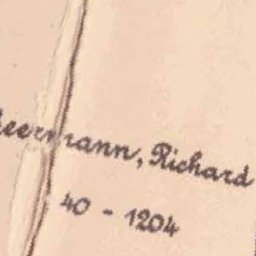 eermann, Richard
40 - 1204